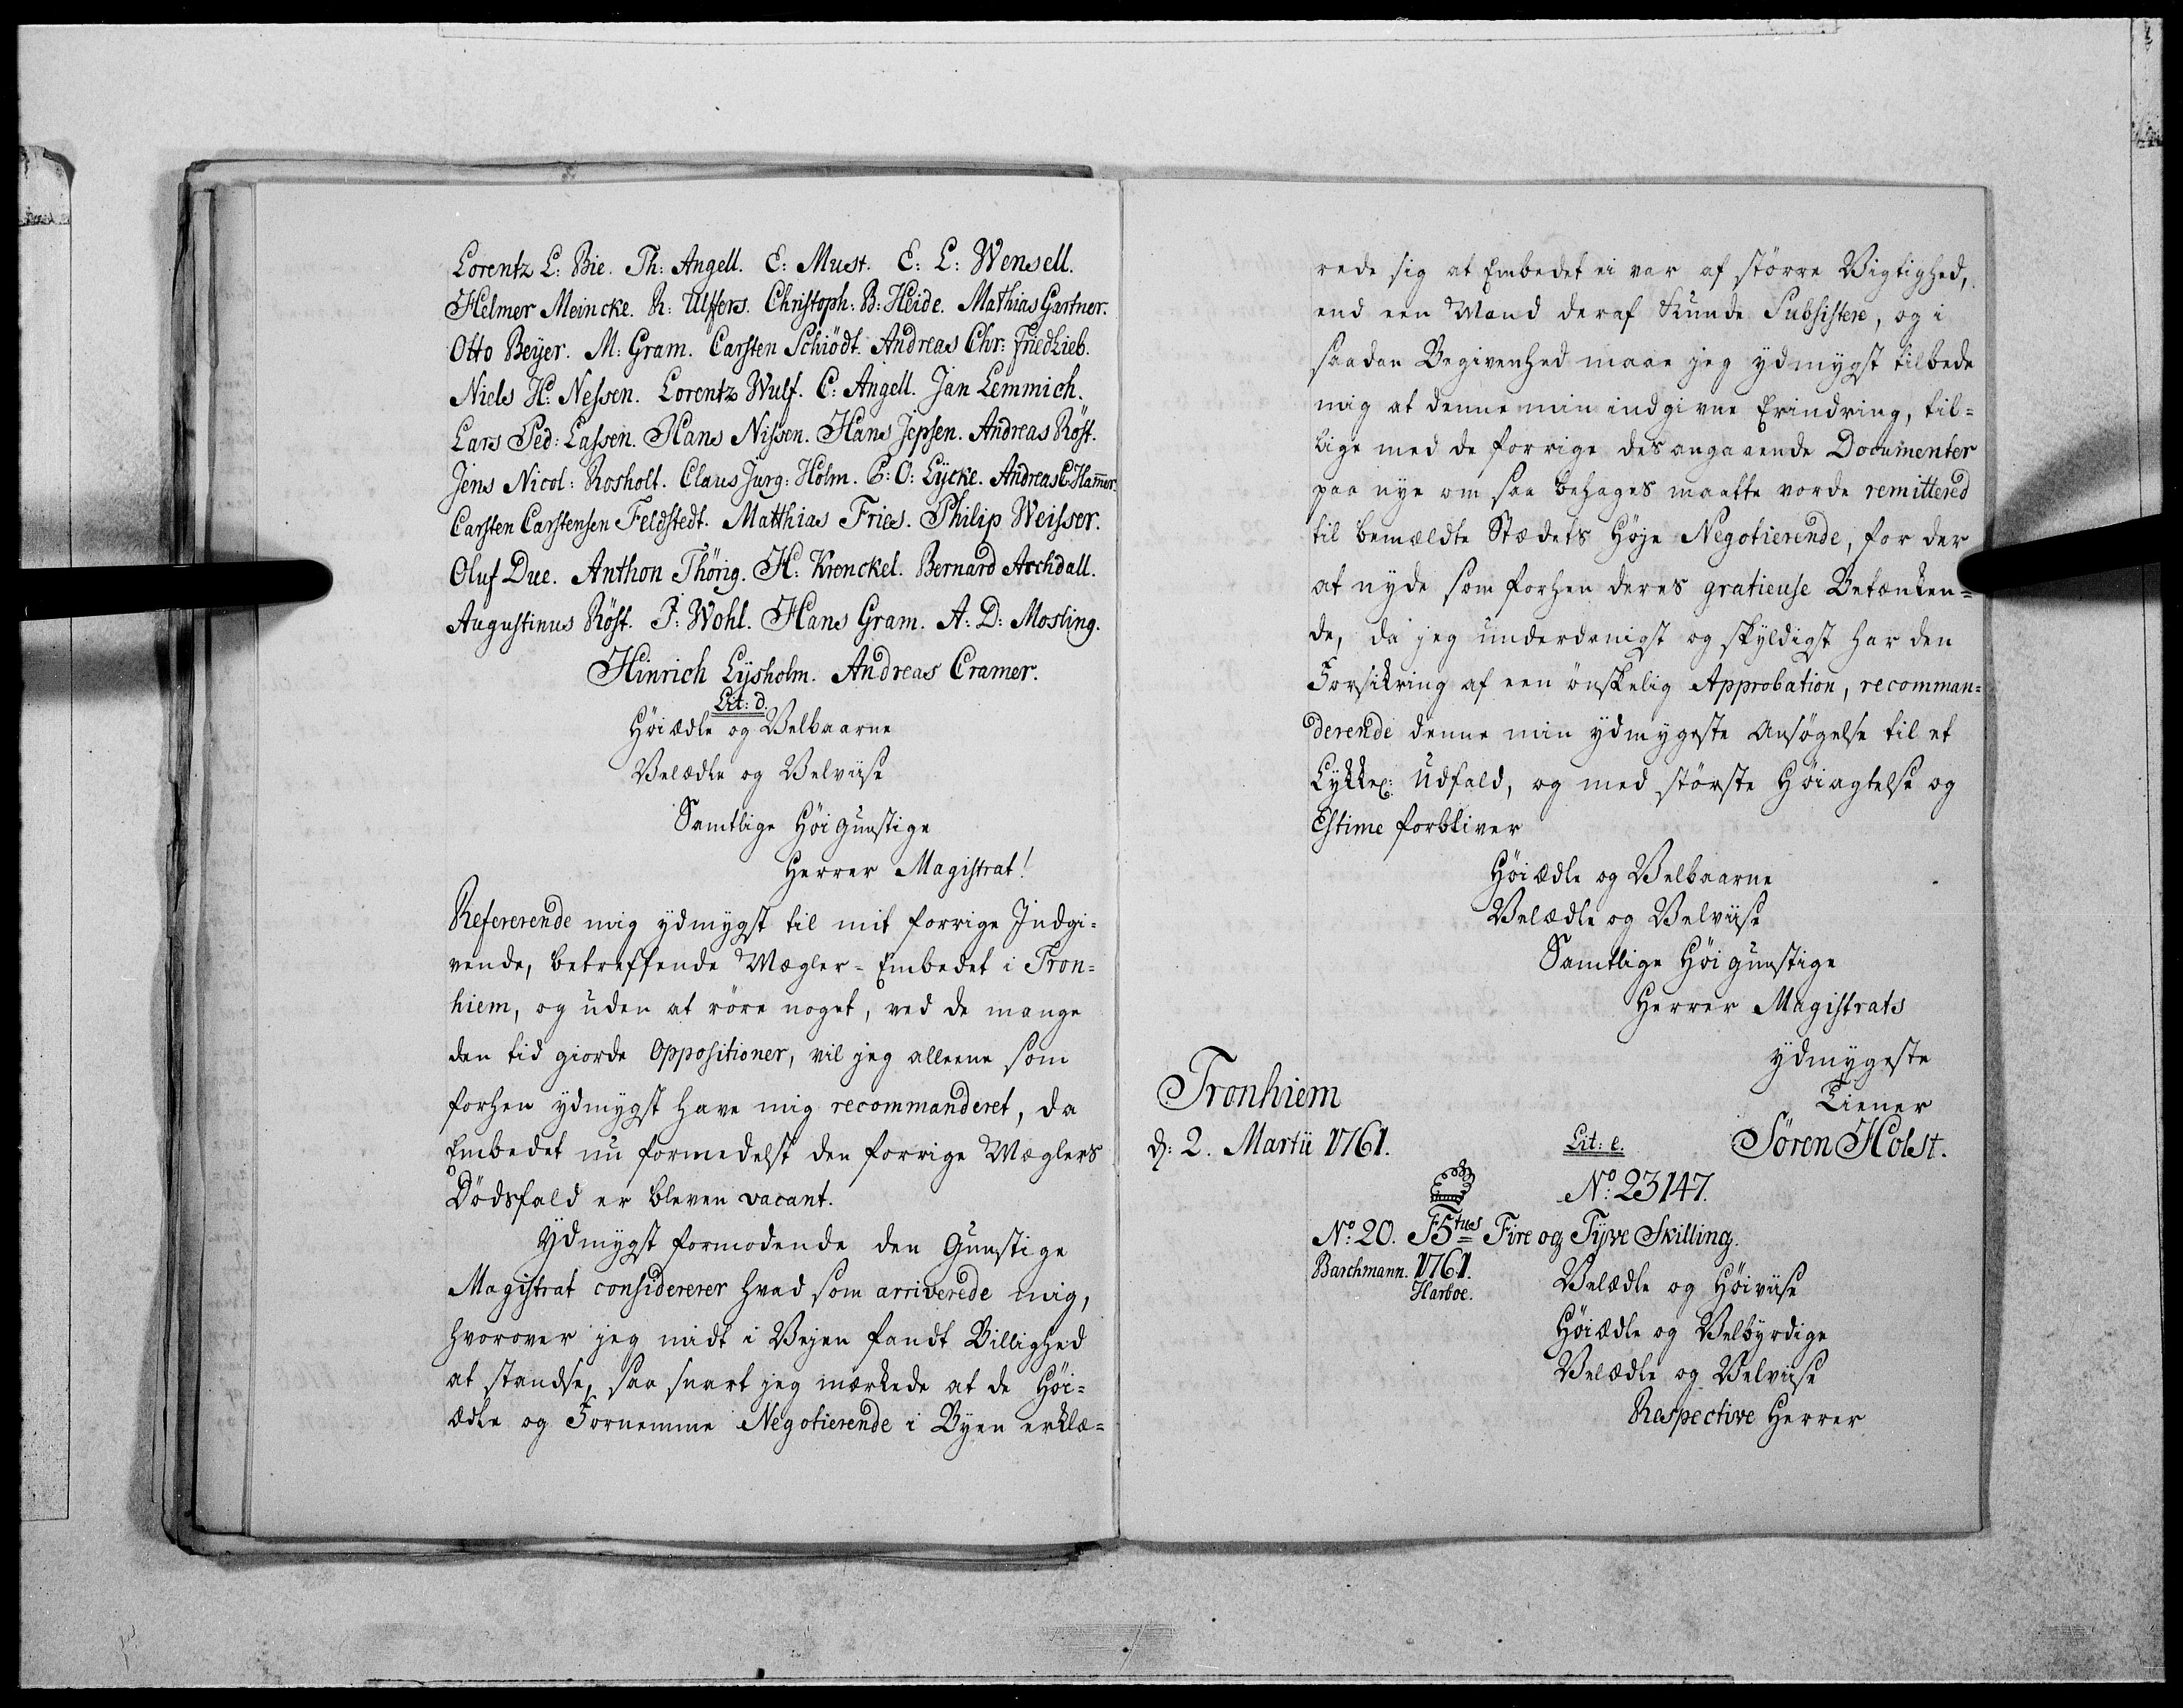 Lorentz L: Bie. Th: Angell. E: Must. E: L: Wensell.
Helmer Meincke. R: Ulffers. Christoph: B: Heide. Mathias Gartner.
Otto Beyer. M: Gram. Carsten Schiödt. Andreas Chr: Friedlieb.
Niels H: Nessen. Lorentz Wulf. C: Angell. Jan Lemmich.
Lars Ped: Lassen. Hans Nissen. Hans Jepsen. Andreas Röst.
Jens Nicol: Rosholt. Claus Jurg: Holm. C: O: Lycke. Andreas C: Ham̅er.
Carsten Carstensen Feldstedt. Matthias Fries. Philip Weisser.
Oluf Due. Anthon Thörig. H: Krenckel. Bernard Archdall.
Augustinus Röst. J: Wohl. Hans Gram. A: D: Mosling.
Hinrich Lysholm. Andreas Cramer.
Lit: d.
Höiædle og Velbaarne
Velædle og Velviise
Samtlige Höigunstige
Herrer Magistrat!
Refererende mig ydmygst til mit forrige Indgi-
vende, betreffende Mægler-Embedet i Tron-
hiem, og uden at röre noget, ved de mange
den tid giorde Oppositioner, vil jeg alleene som
forhen ydmygst have mig recommanderet, da
Embedet nu formedelst den forrige Mæglers
Dödsfald er bleven vacant.
Ydmygst formodende den Gunstige
Magistrat considererer hvad som arriverede mig,
hvorover jeg midt i Vejen fandt Billighed
at standse, saa snart jeg mærkede at de Höi-
ædle og Fornemme Negotierende i Byen erklæ-
rede sig at Embedet ei var af större Vigtighed,
end een Mand deraf kunde Subsistere, og i
saadan Begivenhed maae jeg ydmygst tilbede
mig at denne min indgivne Erindring, til-
lige med de forrige des angaaende Documenter
paa nye om saa behages maatte vorde remittered
til bemældte Stædets Höje Negotierende, for der
at nyde som forhen deres gratieuse Betænken-
de, da jeg underdanigst og skyldigst har den
Forsikring af een önskelig Approbation, recomman-
derende denne min ydmygeste Ansögelse til et
Lykkel: Udfald, og med störste Höiagtelse og
Estime forbliver
Höiædle og Velbaarne
Velædle og Velviise
Samtlige Höigunstige
Herrer Magistrats
ydmygeste
Tiener
Tronhiem
d: 2. Martii 1761.
Sören Holst.
Lit: e.
No: 23147.
No: 20. F5tus Fire og Tyve Skilling.
Barchmann. 1761.
Harboe.
Velædle og Höiviise
Höiædle og Velbyrdige
Velædle og Velviise
Respective Herrer